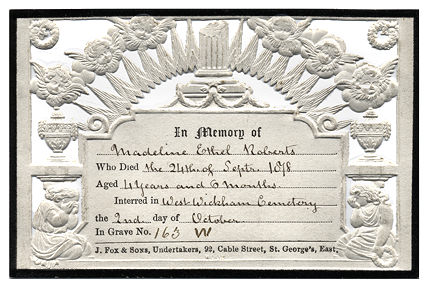 In Memory of
Madeline Ethel Roberts
Who Died the 24th of Septr. 1878
Aged 4 Years and 6 Months.
Interred in West Wickham Cemetery
the 2nd. day of October.
In Grave No. 163 W
J. Fox & Sons, Undertakers, 92, Cable Street, St. George's, East.